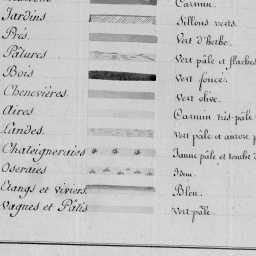 Carmin.
Jardins Sillons verts.
Prés. Vert d'herbe.
Pâtures Vert pâle et flaches
Bois Vert foncé.
Chenevières. Vert olive.
Aires Carmin très-pâle
Landes. Vert pâle et aurore p
Chateigneraies Jaune pâle et tombé d
Oseraies Idem.
Etangs et viviers. Bleu.
Vagues et Pâtis Vert pâle.